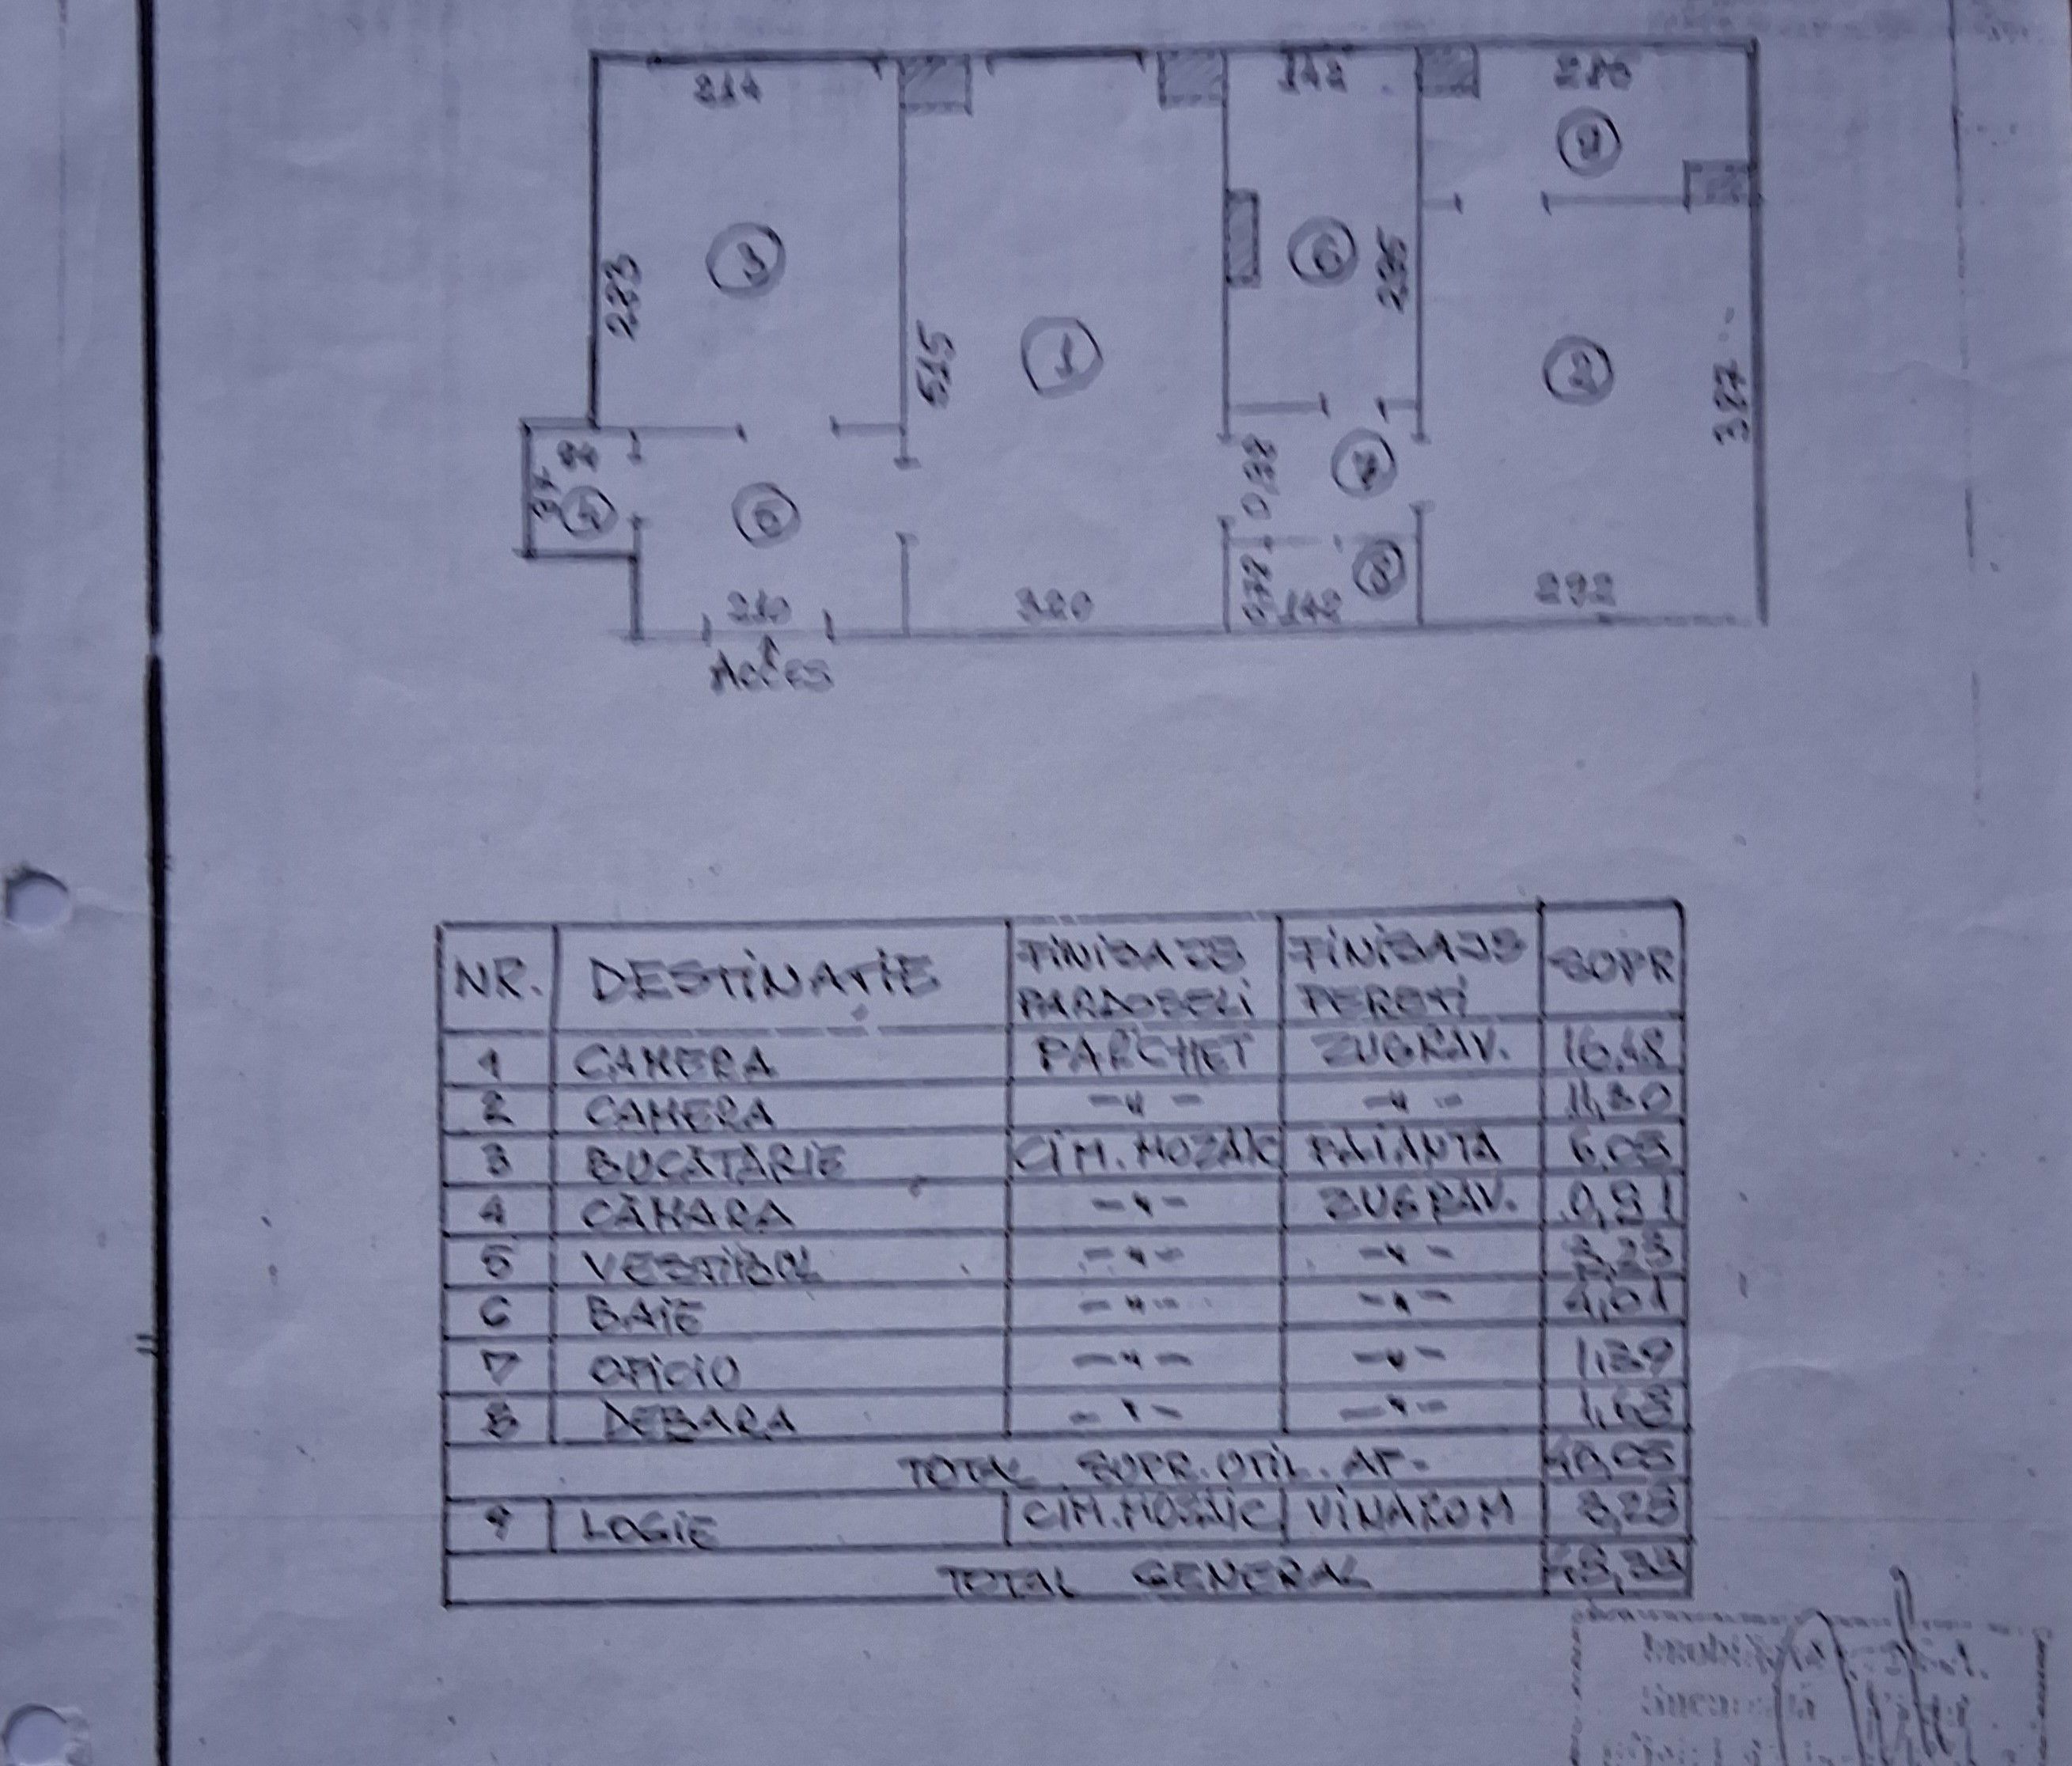 214
142
280
9
3
283
6
285
1
515
2
387
82
97
4
5
7
0,98
8
142
210
320
292
ACCES
NR. DESTINAȚIE FINISAJE PARDOSELI FINISAJE PEREȚI SUPR
1 CAMERA PARCHET ZUGRAV. 16,48
2 CAMERA -"- -"- 11,30
3 BUCĂTĂRIE CIM. MOZAIC FAIANTA 6,05
4 CĂMARA -"- ZUGRAV. 0,91
5 VESTIBUL -"- -"-
6 BAIE -"- -"- 4,01
7 OFICIU -"- -"- 1,39
8 DEBARA -"- -"- 1,63
TOTAL SUPR. UTIL. AP.
9 LOGIE CIM. MOZAIC VINAROM 3,28
TOTAL GENERAL